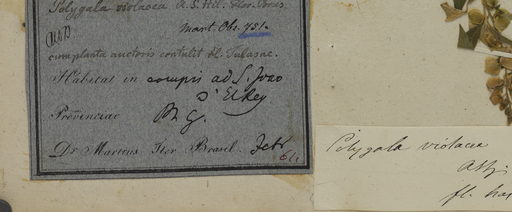 Polygala violacea A. S. Hil. Flor. Bras.
Mart. Obs. 751.
cum planta auctoris contulit cl. Tulasne.
Habitat in campis ad S. Joao
D' El Rey
Provinciae M. G.
Dr Martius Iter Brasil. Febr
Polygala violacea
fl. bras